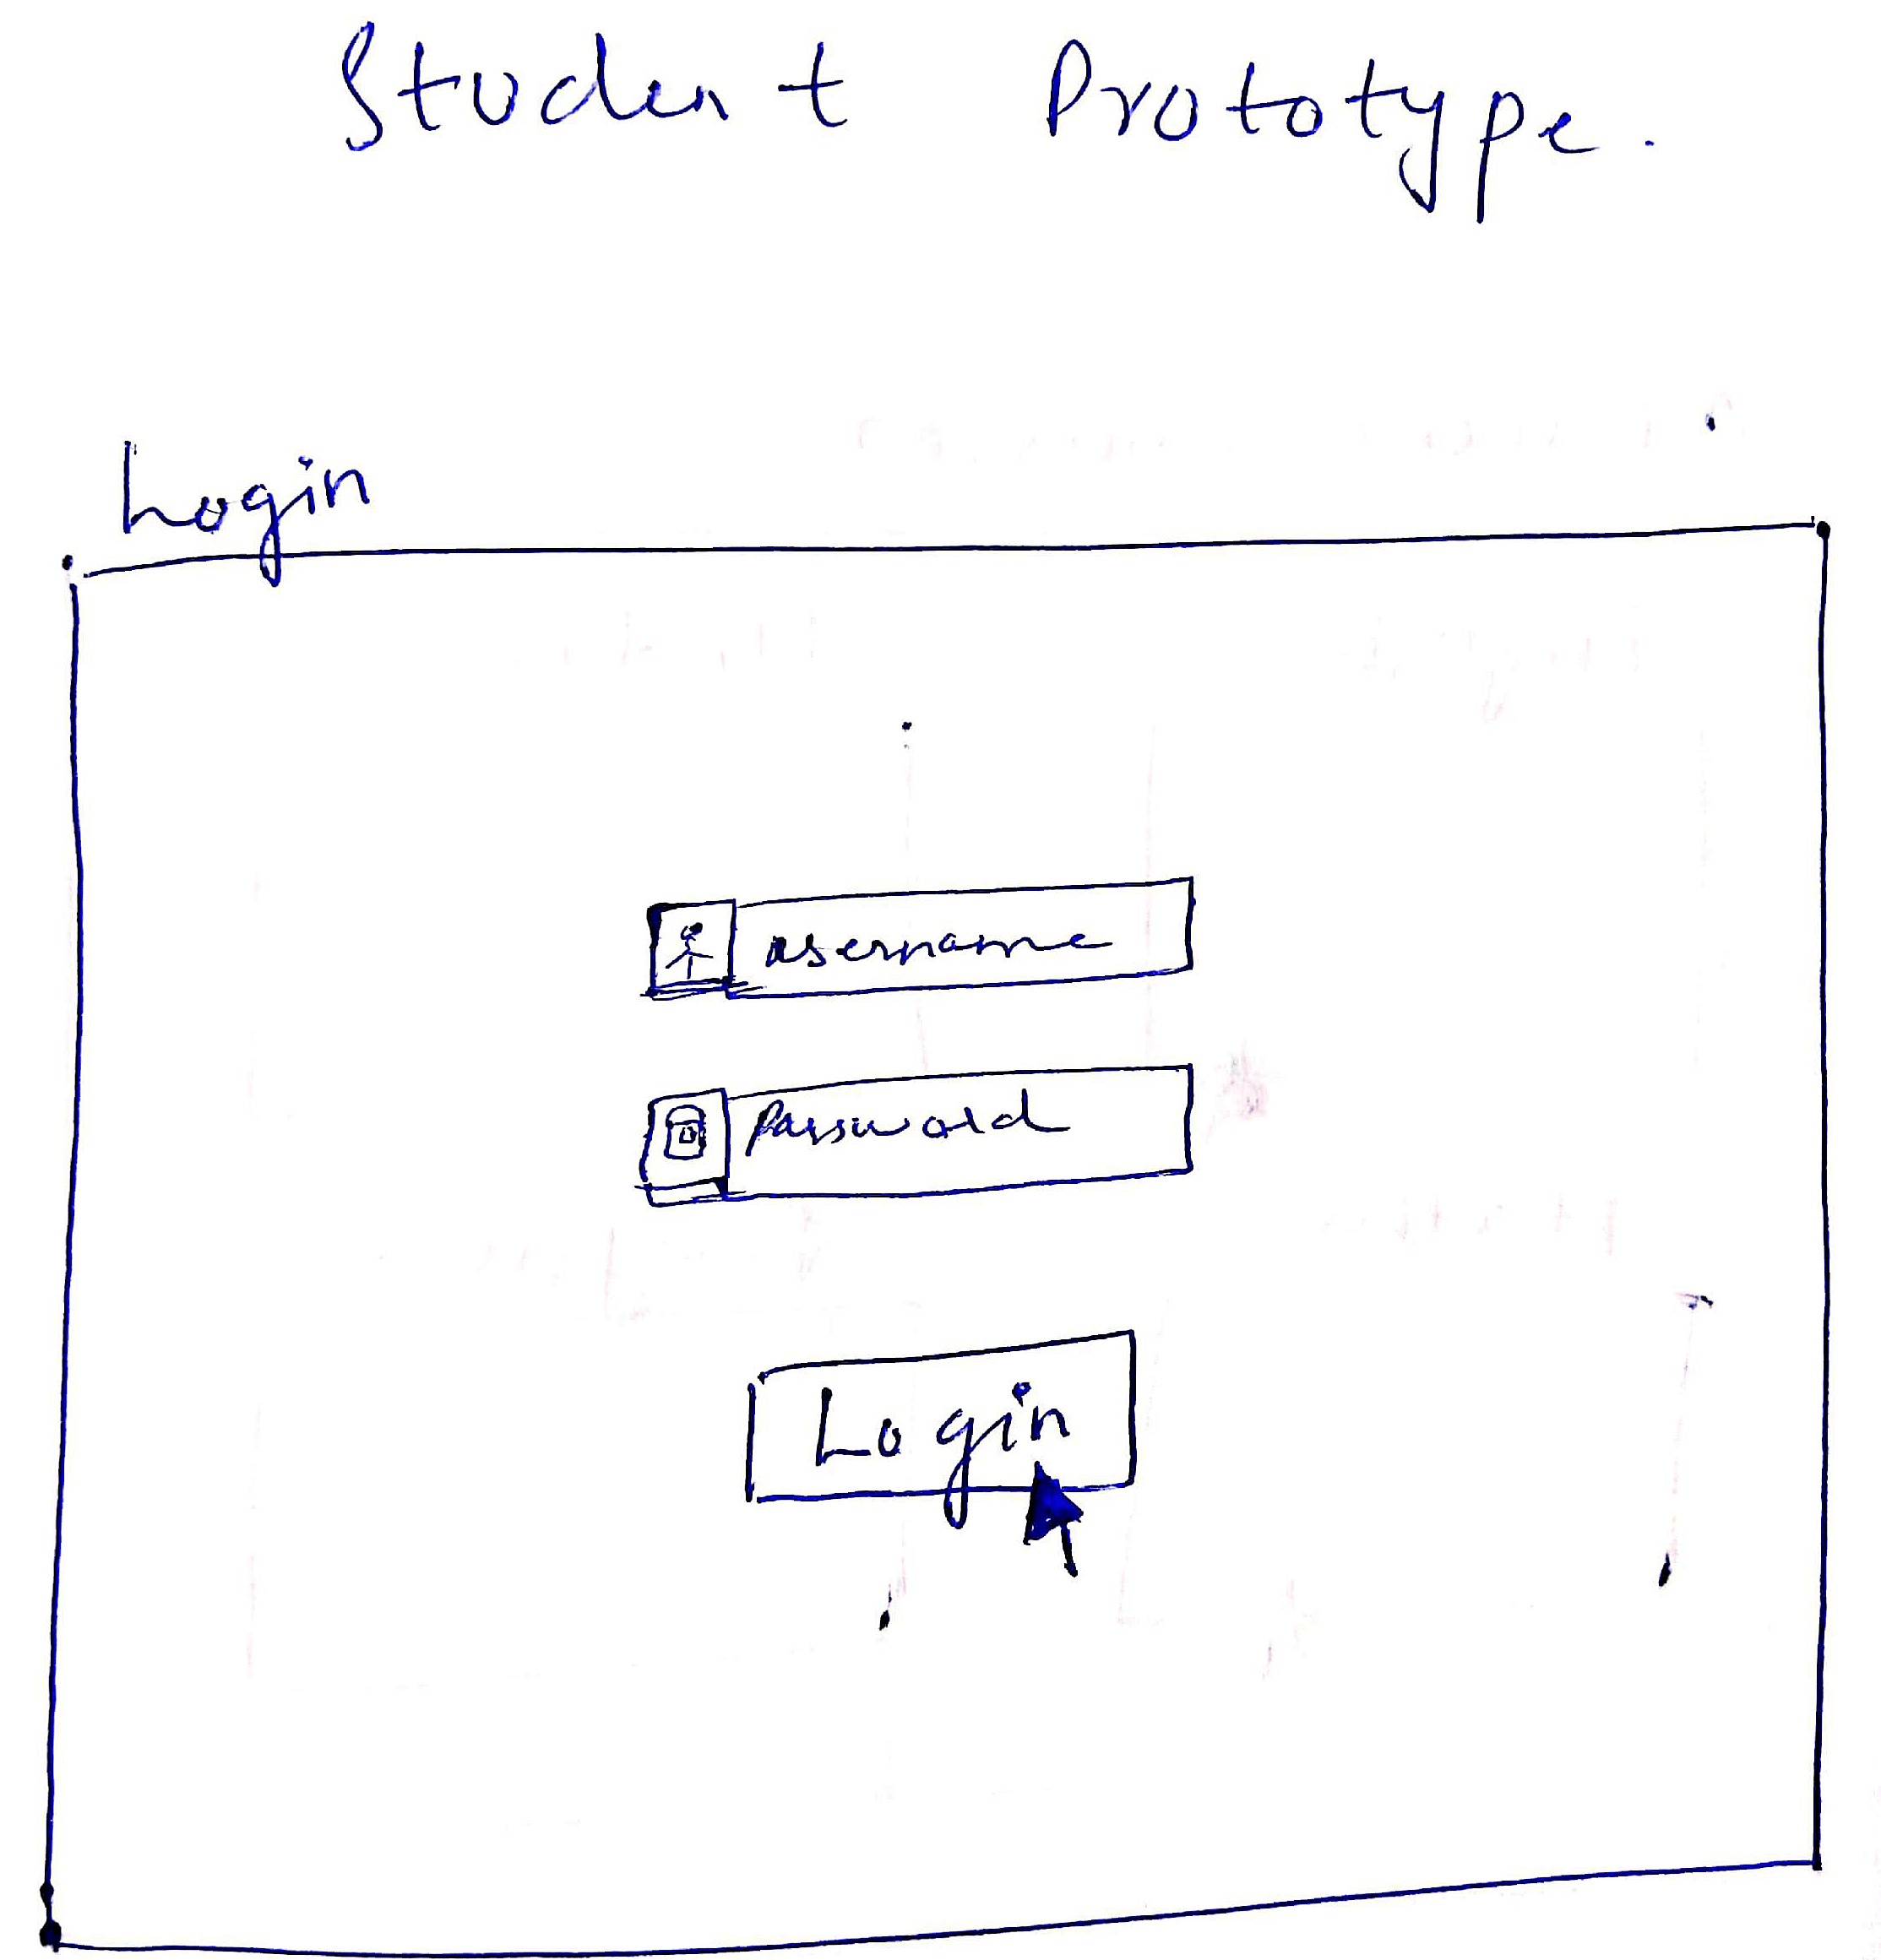 Student Prototype.
Login
username
Password
Login